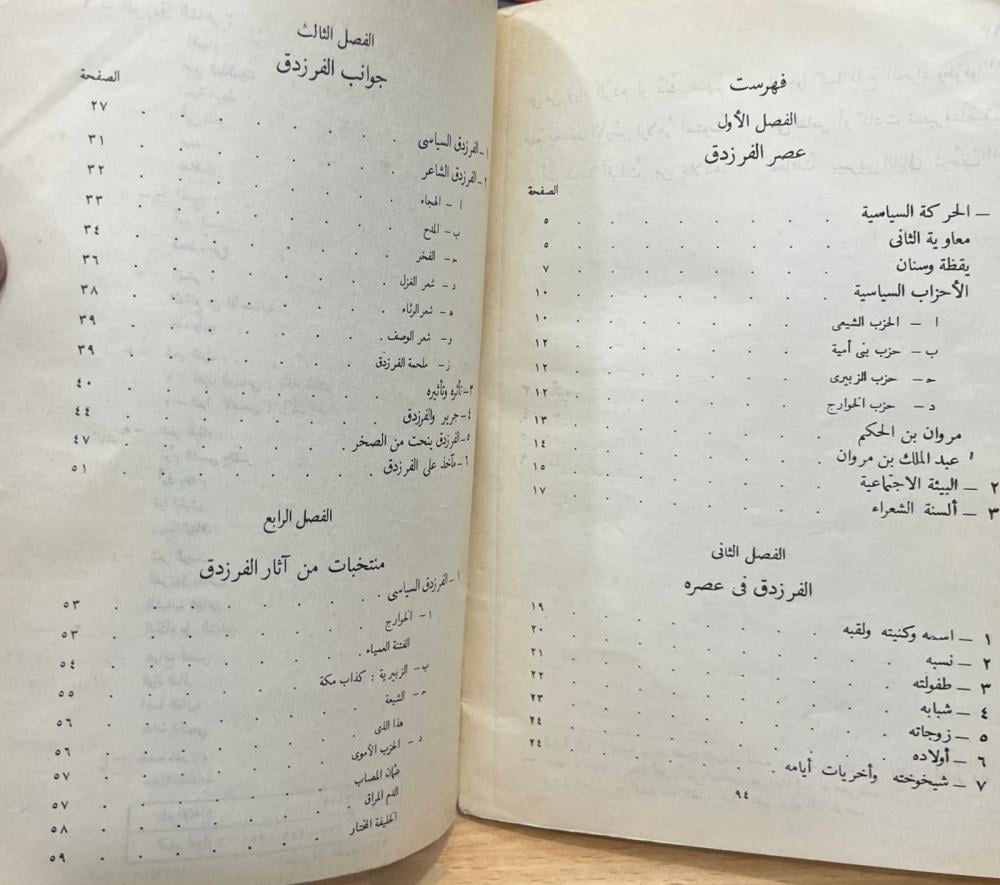 فهرست
الفصل الأول
عصر الفرزدق
الصفحة
— الحركة السياسية . . . . . . . ٥
معاوية الثانى . . . . . . . ٥
يقظة وسنان . . . . . . . ٧
الأحزاب السياسية . . . . . . . ١٠
ا — الحزب الشيعى . . . . . . . ١٠
ب — حزب بنى أمية . . . . . . . ١٢
ح — حزب الزبيرى . . . . . . . ١٢
د — حزب الخوارج . . . . . . . ١٢
مروان بن الحكم . . . . . . . ١٣
عبد الملك بن مروان . . . . . . . ١٤
٢ — البيئة الاجتماعية . . . . . . . ١٥
٣ — ألسنة الشعراء . . . . . . . ١٧
الفصل الثانى
الفرزدق فى عصره
١ — اسمه وكنيته ولقبه . . . . . . . ١٩
٢ — نسبه . . . . . . . ٢٠
٣ — طفولته . . . . . . . ٢١
٤ — شبابه . . . . . . . ٢٢
٥ — زوجاته . . . . . . . ٢٣
٦ — أولاده . . . . . . . ٢٤
٧ — شيخوخته وأخريات أيامه . . . . . . . ٢٤
٩٤
الفصل الثالث
جوانب الفرزدق
الصفحة
١ — الفرزدق السياسى . . . . . . . ٢٧
٢ — الفرزدق الشاعر . . . . . . . ٣١
ا — الهجاء . . . . . . . ٣٢
ب — المدح . . . . . . . ٣٣
ح — الفخر . . . . . . . ٣٤
د — شعر الغزل . . . . . . . ٣٦
ه — شعر الرثاء . . . . . . . ٣٨
و — شعر الوصف . . . . . . . ٣٩
ز — ملحمة الفرزدق . . . . . . . ٣٩
٣ — تأثره وتأثيره . . . . . . . ٤٠
٤ — جرير والفرزدق . . . . . . . ٤٤
٥ — الفرزدق ينحت من الصخر . . . . . . . ٤٧
٦ — مآخذ على الفرزدق . . . . . . . ٥١
الفصل الرابع
منتخبات من آثار الفرزدق
١ — الفرزدق السياسى . . . . . . . ٥٣
ا — الخوارج . . . . . . . ٥٣
الفتنة العمياء . . . . . . . ٥٤
ب — الزبيرية : كذاب مكة . . . . . . . ٥٥
ح — الشيعة . . . . . . . ٥٦
هذا الذى . . . . . . . ٥٦
د — الحزب الأموى . . . . . . . ٥٧
عثمان المصاب . . . . . . . ٥٧
الدم المراق . . . . . . . ٥٨
الخليفة المختار . . . . . . . ٥٩